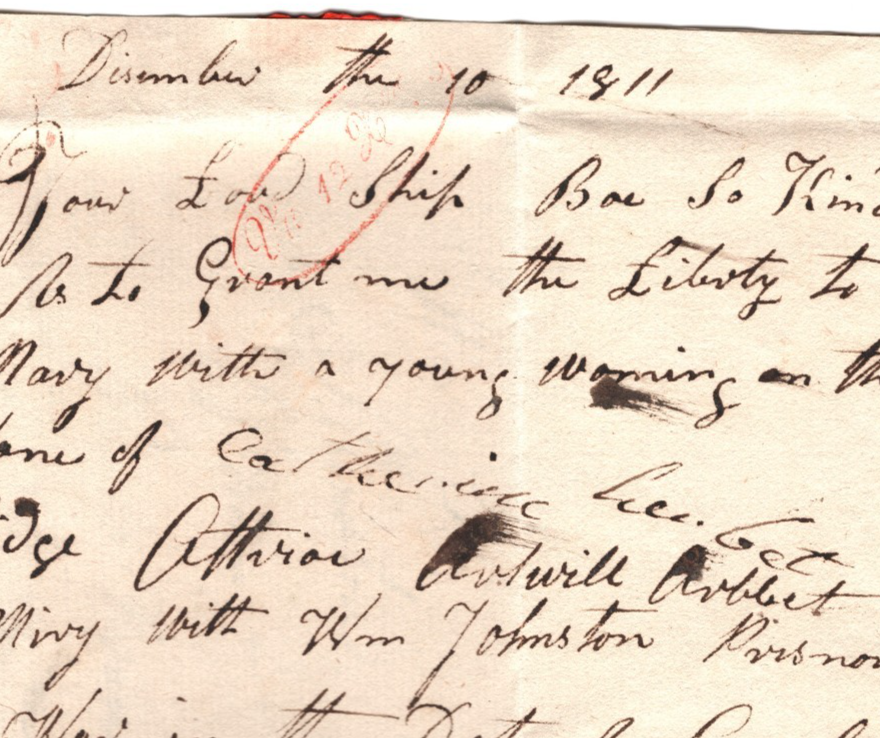 Disember the 10 1811
Your Lord Ship Boe So Kind
As to Grant me the Liberty to
Mary with a young woming on th
ane of Catherine Lee.
dge Attrioe Arlwill Arbbet
Mivy with Wm Johnston Prisnor
War in the